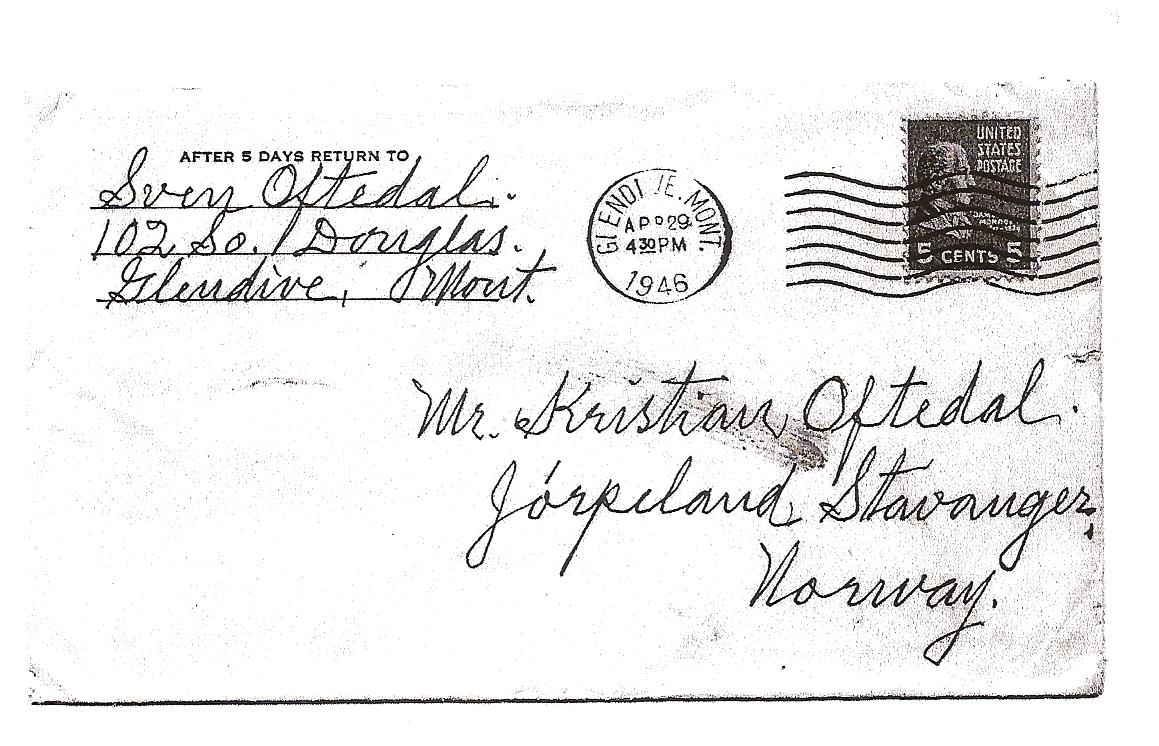 AFTER 5 DAYS RETURN TO
Sven Oftedal.
102 So. Douglas.
Glendive, Mont.
GLENDIVE. MONT.
APR 29
4 30 PM
1946
UNITED
STATES
POSTAGE
JAMES
MONROE
5 CENTS 5
Mr. Kristian Oftedal.
Jórpeland, Stavanger,
Norway.